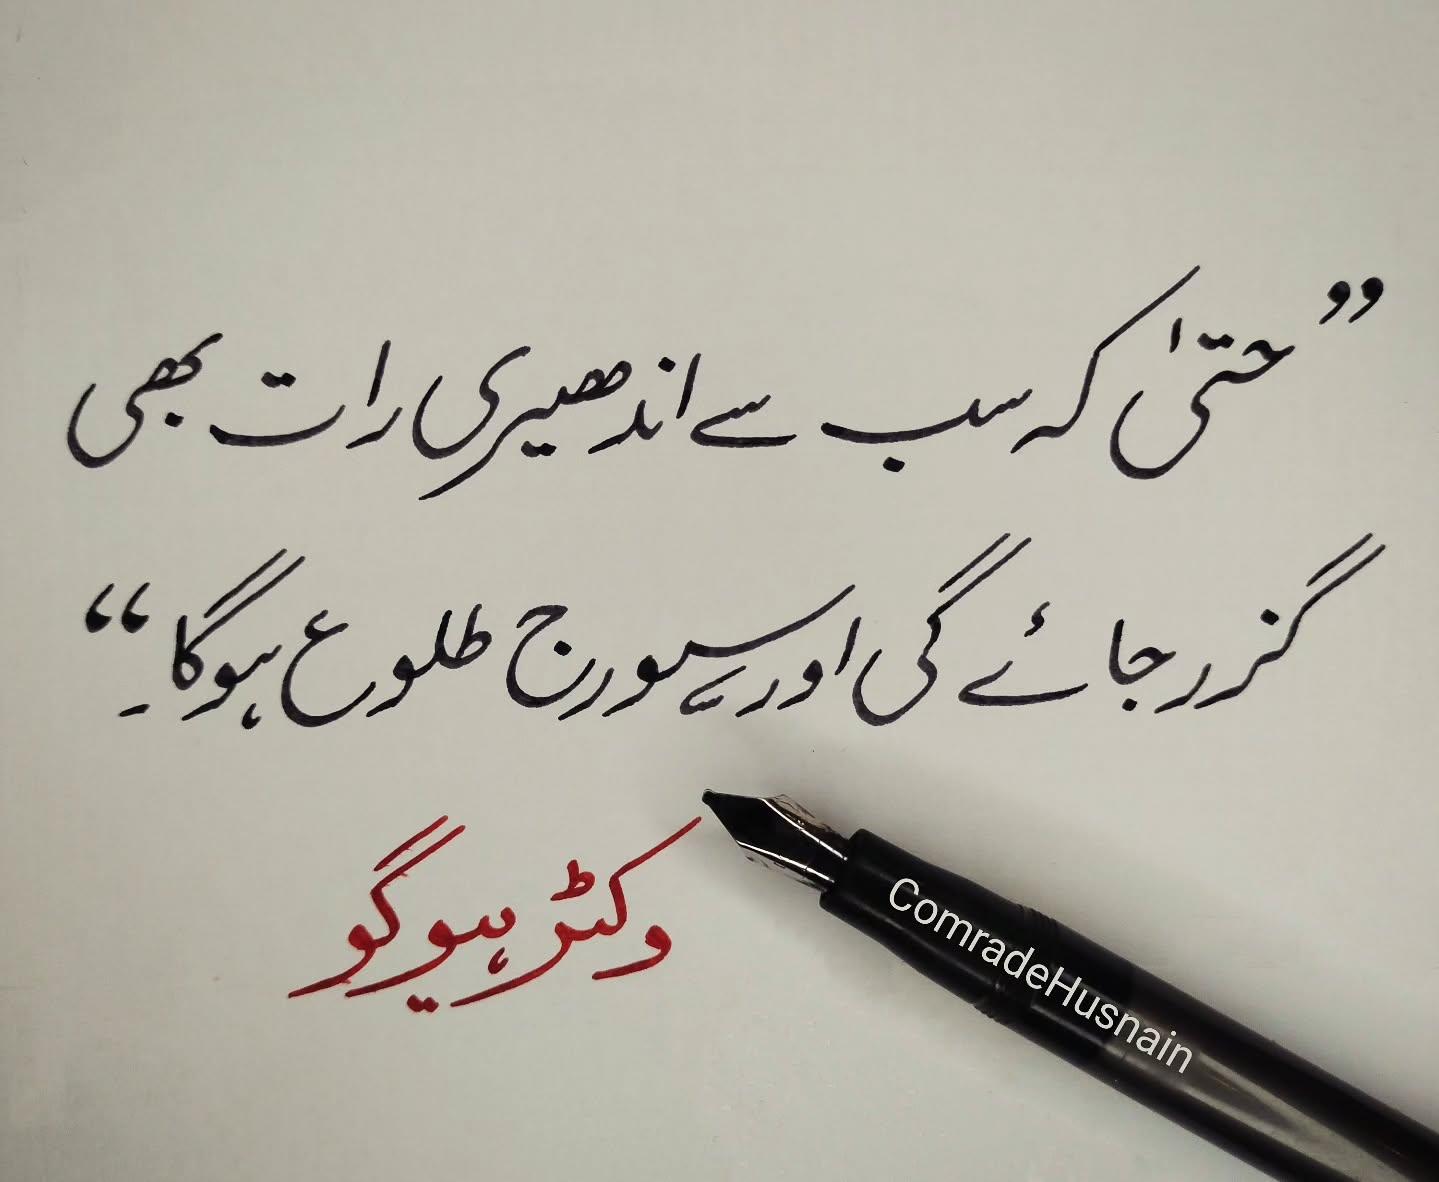 ”حتیٰ کہ سب سے اندھیری رات بھی
گزر جائے گی اور سورج طلوع ہوگا۔“
وکٹر ہیوگو
ComradeHusnain